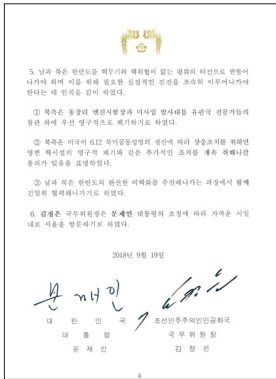 5. 남과 북은 한반도를 핵무기와 핵위협이 없는 평화의 터전으로 만들어
나가야 하며 이를 위해 필요한 실질적인 진전을 조속히 이루어나가야
한다는 데 인식을 같이 하였다.
① 북측은 동창리 엔진시험장과 미사일 발사대를 유관국 전문가들의
참관 하에 우선 영구적으로 폐기하기로 하였다.
② 북측은 미국이 6.12 북미공동성명의 정신에 따라 상응조치를 취하면
영변 핵시설의 영구적 폐기와 같은 추가적인 조치를 계속 취해나갈
용의가 있음을 표명하였다.
③ 남과 북은 한반도의 완전한 비핵화를 추진해나가는 과정에서 함께
긴밀히 협력해나가기로 하였다.
6. 김정은 국무위원장은 문재인 대통령의 초청에 따라 가까운 시일
내로 서울을 방문하기로 하였다.
2018년 9월 19일
문재인
대한민국 조선민주주의인민공화국
대통령 국무위원장
문재인 김정은
4